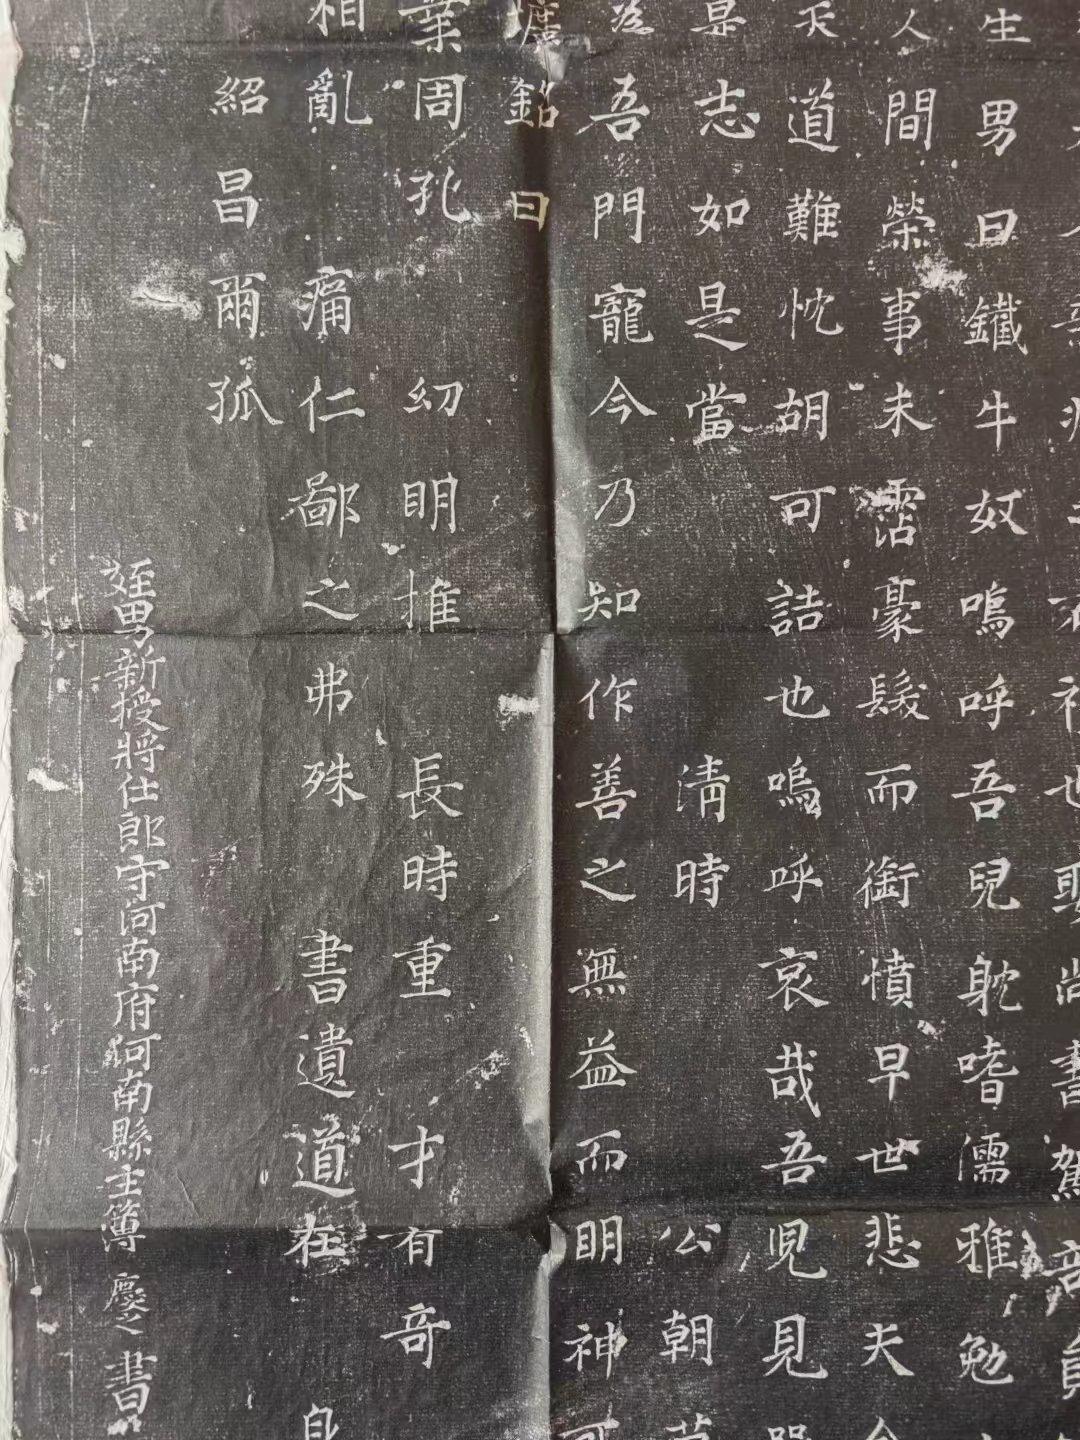 生男曰鐵牛奴嗚呼吾兒躭嗜儒雅勉
人間榮事未霑豪髮而銜憤早世悲夫
天道難忱胡可詰也嗚呼哀哉吾児見
是志如是當 清時 公朝
吾門寵今乃知作善之無益而明神可
銘曰
業周孔 幻明推 長時重才有奇
相亂 痛仁鄙之弗殊 書遺道在 自
紹昌爾孤
姪男新授將仕郎守河南府河南縣主簿 慶之 書